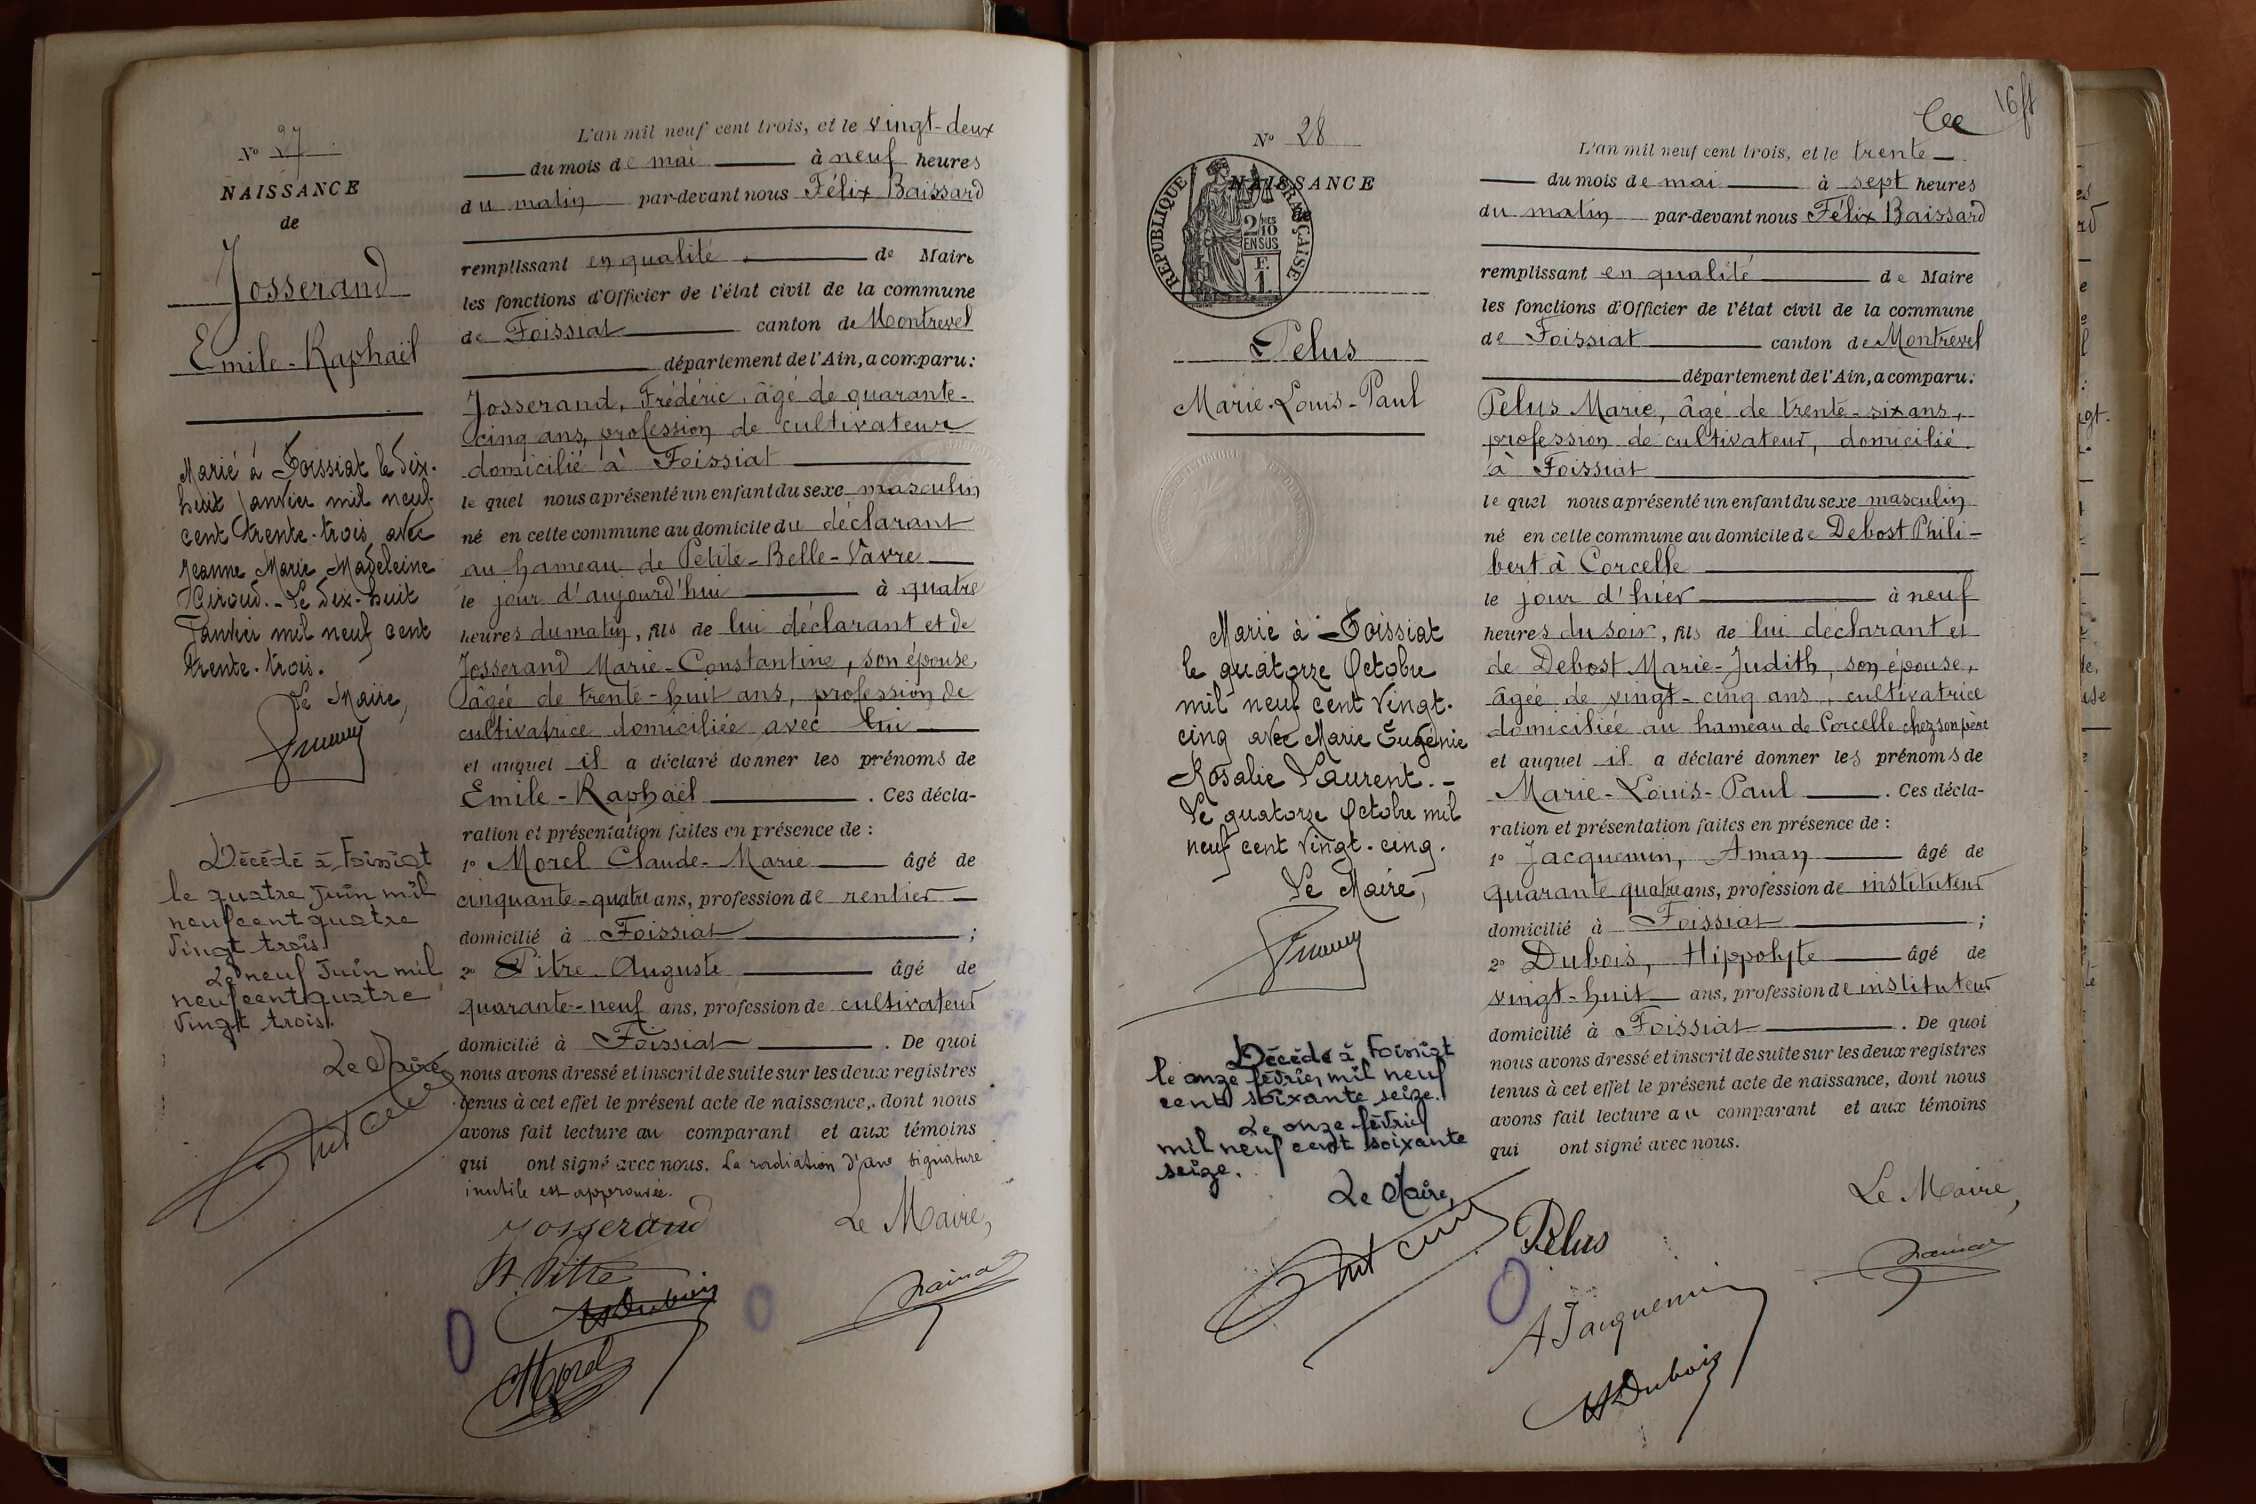 N° 27
NAISSANCE
de
Josserand
Emile-Raphaël
Marié à Foissiat le dix-
huit Janvier mil neuf
cent trente-trois avec
Jeanne Marie Madeleine
Giroud. - Le dix-huit
Janvier mil neuf cent
trente-trois.
Le Maire,
Décédé à Foissiat
le quatre Juin mil
neuf cent quatre
vingt trois.
Le neuf Juin mil
neuf cent quatre
vingt trois.
Le Maire,
L'an mil neuf cent trois, et le vingt-deux
du mois de mai à neuf heures
du matin par-devant nous Félix Baissard
remplissant en qualité de Maire
les fonctions d'Officier de l'état civil de la commune
de Foissiat canton de Montrevel
département de l'Ain, a comparu:
Josserand, Frédéric, âgé de quarante-
cinq ans, profession de cultivateur
domicilié à Foissiat
le quel nous a présenté un enfant du sexe masculin
né en cette commune au domicile du déclarant
au hameau de Petite-Belle-Vavre
le jour d'aujourd'hui à quatre
heures du matin, fils de lui déclarant et de
Josserand Marie-Constantine, son épouse,
âgée de trente-huit ans, profession de
cultivatrice domiciliée avec lui
et auquel il a déclaré donner les prénoms de
Emile-Raphaël. Ces décla-
ration et présentation faites en présence de :
1° Morel Claude-Marie âgé de
cinquante-quatre ans, profession de rentier
domicilié à Foissiat ;
2° Pitre Auguste âgé de
quarante-neuf ans, profession de cultivateur
domicilié à Foissiat. De quoi
nous avons dressé et inscrit de suite sur les deux registres
tenus à cet effet le présent acte de naissance, dont nous
avons fait lecture au comparant et aux témoins
qui ont signé avec nous. La radiation d'une signature
inutile est approuvée.
Josserand
Le Maire,
A. Pitre
H Dubois
CMorel
16 ft
N° 28
NAISSANCE
de
RÉPUBLIQUE FRANÇAISE
2/10
EN SUS
F.
1
Pelus
Marie-Louis-Paul
Marié à Foissiat
le quatorze Octobre
mil neuf cent vingt-
cinq avec Marie Eugénie
Rosalie Laurent. -
Le quatorze Octobre mil
neuf cent vingt-cinq.
Le Maire,
Décédé à Foissiat
le onze février mil neuf
cent soixante seize.
Le onze février
mil neuf cent soixante
seize.
Le Maire,
L'an mil neuf cent trois, et le trente
du mois de mai à sept heures
du matin par-devant nous Félix Baissard
remplissant en qualité de Maire
les fonctions d'Officier de l'état civil de la commune
de Foissiat canton de Montrevel
département de l'Ain, a comparu:
Pelus Marie, âgé de trente-six ans,
profession de cultivateur, domicilié
à Foissiat
le quel nous a présenté un enfant du sexe masculin
né en cette commune au domicile de Debost Phili-
bert à Corcelle
le jour d'hier à neuf
heures du soir, fils de lui déclarant et
de Debost Marie-Judith, son épouse,
âgée de vingt-cinq ans, cultivatrice
domiciliée au hameau de Corcelle chez son père
et auquel il a déclaré donner les prénoms de
Marie-Louis-Paul. Ces décla-
ration et présentation faites en présence de :
1° Jacquemin, Aman âgé de
quarante quatre ans, profession de instituteur
domicilié à Foissiat ;
2° Dubois, Hippolyte âgé de
vingt-huit ans, profession de instituteur
domicilié à Foissiat. De quoi
nous avons dressé et inscrit de suite sur les deux registres
tenus à cet effet le présent acte de naissance, dont nous
avons fait lecture au comparant et aux témoins
qui ont signé avec nous.
Le Maire,
Pelus
A Jacquemin
H Dubois